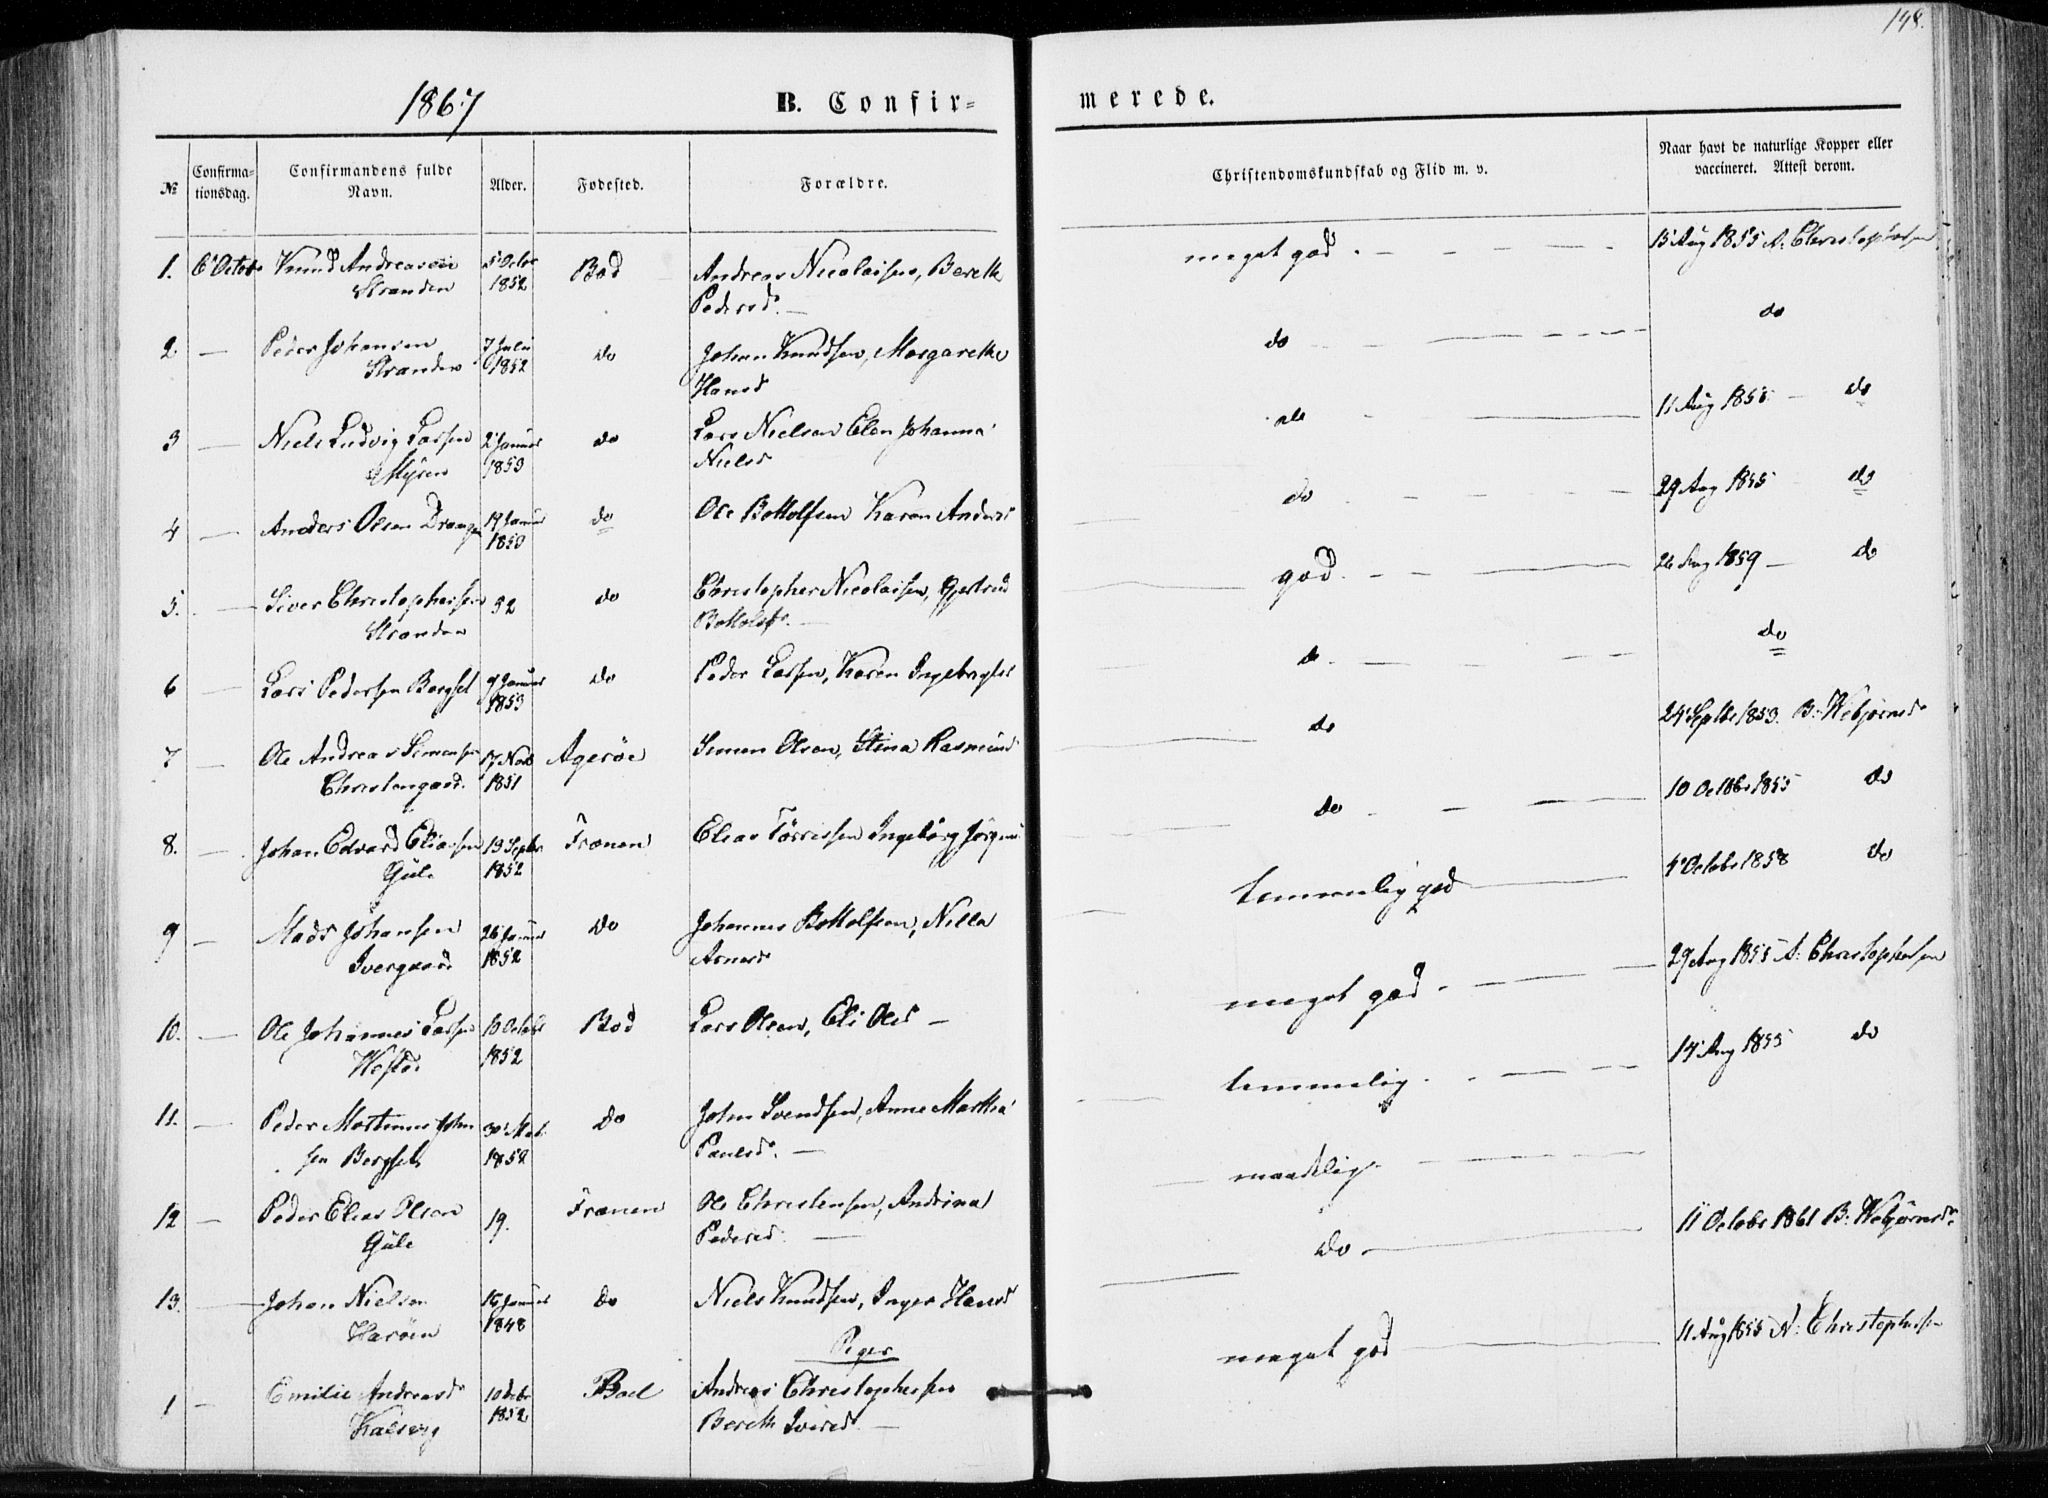 148.
1867
B. Confir-
merede.
№
Confirma-
tionsdag.
Confirmandens fulde
Navn.
Alder.
Fødested.
Forældre.
Christendomskundskab og Flid m. v.
Naar havt de naturlige Kopper eller
vaccineret. Attest derom.
1. 6 Octob Knud Andreasen 5 Octbr Bod Andreas Nicolaisen, Bereth meget god. 15 Aug 1855 A. Christophersen
Stranden 1852 Pedersd.
2 — Peder Johansen 7 Juli do Johan Knudsen, Margarethe do do
Stranden 1852 Hansd
3 — Niels Ludvig Larsen 2 Januar do Lars Nielsen Elen Johanna do 11 Aug 1855 — do
Myren 1853 Nielsd
4 — Anders Olsen 19 Januar do Ole Bottolfsen Karen Andersd do 29 Aug 1855 do
1853
5. — Siver Christophersen 52 do Christopher Nicolaisen, Gjertrud god. 26 Aug 1859 — do
Stranden Bottolfsd.
6 — Lars Pedersen Bergset 9 Januar do Peder Larsen, Karen Ingebrigtsd do do
1853
7 — Ole Andreas Simonsen 17 Novb Agerøe Simon Olsen, Stina Rasmusd do 24 Septbr 1853. B. Webjørnsd
Christengaard. 1851
8. — Johan Edvard Eliassen 13 Septbr Frænen Elias Tørrissen Ingeborg Jørgensd do 10 Octbr 1855 do
Gule 1852
9 — Mads Johansen 26 Januar do Johannes Bottolfsen, Nilla temmelig god 4 Octobr 1858 do
Ivergaard 1852 Arnesd
10. — Ole Johannes Larsen 10 Octobr Bod Lars Olsen, Eli Olsd — meget god. 29 Aug 1855 A. Christophersen
1852
11. — Peder Mortinus John 30 do John Svendsen, Anne Martha temmelig. 14 Aug 1855 do
sen Bergset 1852 Paulsd. —
12 — Peder Elias Olsen 19. Frænen Ole Christensen, Andrina maadelig.
Gule Pedersd. —
13. — Johan Nielsen 16 Januar do Niels Knudsen, Inger Hansd do — 11 Octobr 1861 B. Webjørnsd.
Harøen 1848
Piger
1 — Emilie Andreasd 10 Decbr Bod Andreas Christophersen meget god 11 Aug 1855 N. Christophersen
1852 Bereth Iversd —